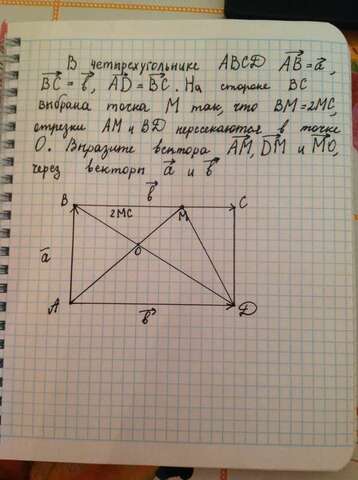 В четырехугольнике ABCD AB⃗=a⃗,
BC⃗ = b⃗, AD⃗ = BC⃗. На стороне BC
выбрана точка M так, что BM=2MC,
отрезки AM и BD пересекаются в точке
O. Выразите вектора AM⃗, DM⃗ и MO⃗,
через векторы a⃗ и b⃗
b⃗
B M C
2MC
O
a⃗
A D
b⃗